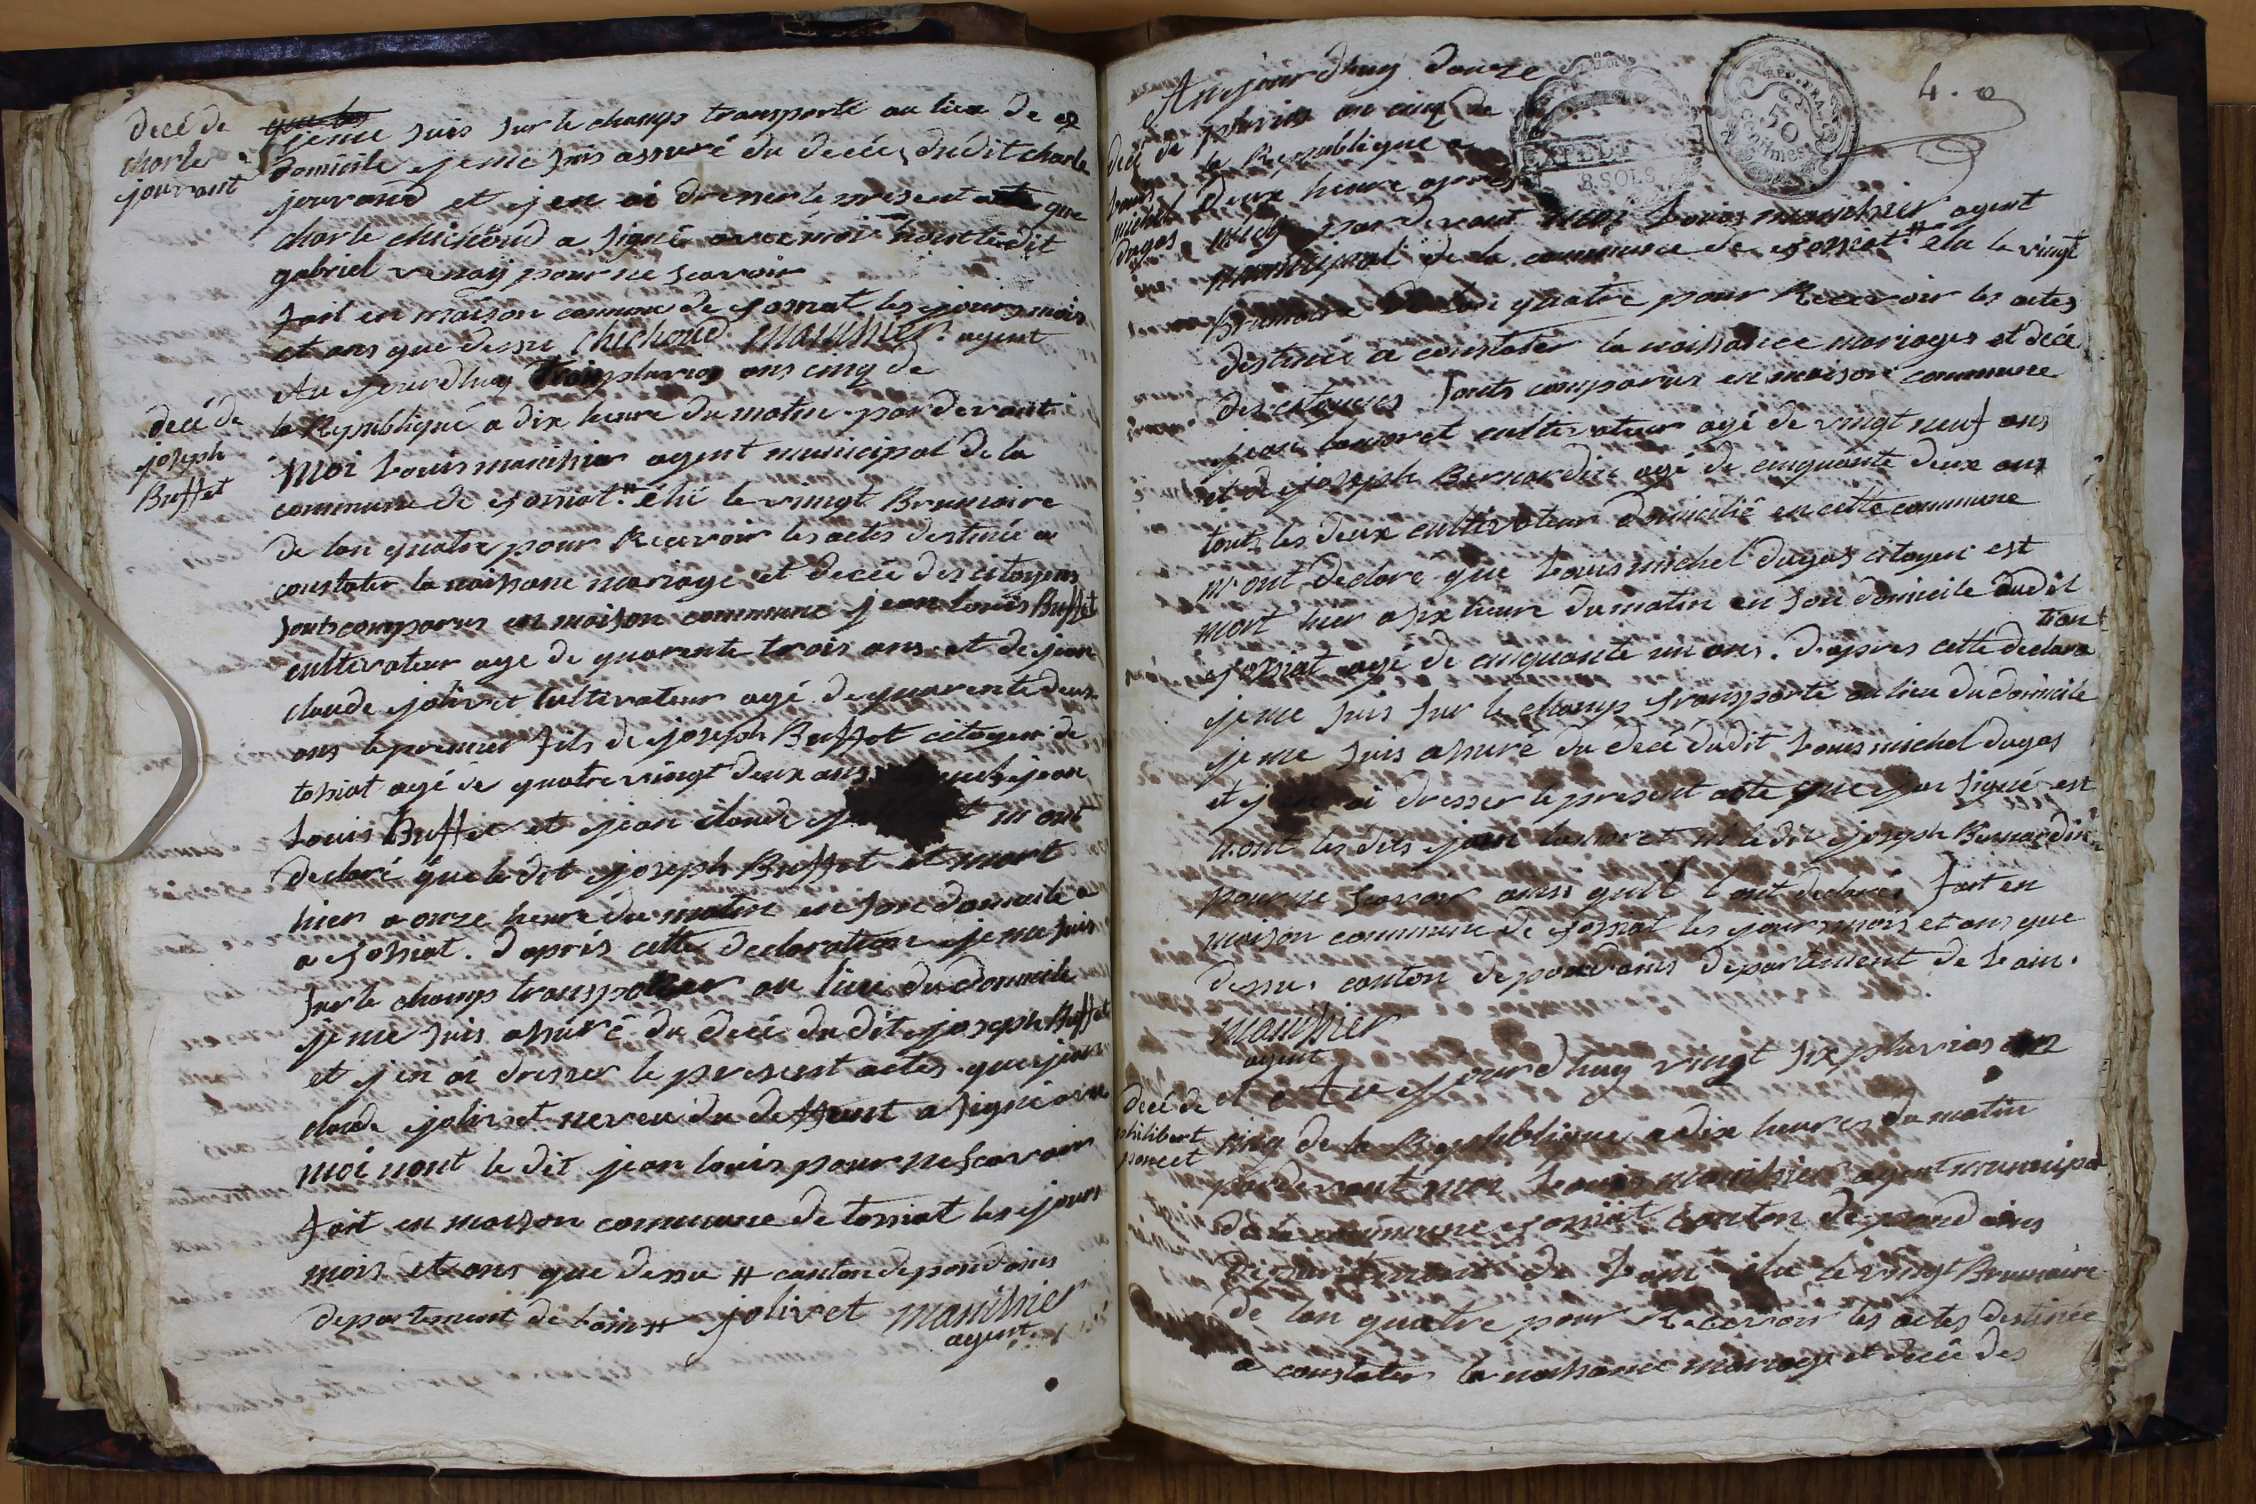 decé de
charle
jouvant
je me suis sur le champs transporté au lieu de ce
domicile je me suis assuré du decée dudit charle
jouvand et jen ai dresser le present acte que
charle chichoud a signé avec moi nont ledit
gabriel venay pour ne scavoir
fait en maison commune de tossiat les jours mois
et ans que dessu chichoud mauchier agent
decé de
joseph
Buffet
Au jourdhuy trois pluvios ans cinq de
la Republique a dix heure du matin par devant
moi Louis mauchier agent municipal de la
commune de tossiat # élu le vingt Brumaire
de lan quatre pour Recevoir les actes destinée a
constater la naissane mariage et decée des citoyens
sonts comparus en maison commune jean louis Buffet
cultivateur age de quarente trois ans et de jean
claude jolivet cultivateur agé de quarente deux
ans le premier fils de joseph Buffet citoyen de
tossiat agé de quatre vingt deux ans jean
Louis Buffet et jean claude m'ont
declaré que le dit joseph Buffet et mort
hier a onze heure du matin en son domicile a
a tossiat. d'aprés cette declaration je me suis
sur le champs transporter au lieu du domicile
je me suis assuré du decée du dit joseph Buffet
et j en ai dresser le present actes que jean
claude jolivet neveu du deffunt a signé avec
moi nont le dit jean louis pour ne scavoir
fait en maison commune de tossiat les jours
mois et ans que dessu # canton de pondains
departement de Lain # jolivet mauchier
agent
4.
REP. FRA.
50
centimes
8 SOLS
decé de
Louis
michel
dugas
Au jour dhuy douze
pluvios an cinq de
la Republique a
deux heure après
midy par devant moi Louis mauchier agent
municipal de la commune de tossiat # élu le vingt
Brumaire de lan quatre pour Recevoir les actes
destinée a constater la naissance mariages et decé
des citoyens sonts comparus en maison commune
jean lamoret cultivateur agé de vingt neuf ans
et de joseph Bernardin agé de cinquante deux ans
touts les deux cultivateur domicilié en cette commune
m'ont declaré que Louis michel dugas citoyen est
mort hier a six heure du matin en son domicile audit
tossiat agé de cinquante un ans. d'apres cette declara
tion
je me suis sur le champs transporté au lieu du domicile
je me suis assuré du decé dudit Louis michel dugas
et j ai dresser le present acte que jai signé est
nont les dits jean lamoret ni le dit joseph Bernardin
pour ne scavoir ainsi quil l ont declarés fait en
maison commune de tossiat les jours mois et ans que
dessu. canton de pondains departement de Lain.
mauchier
agent
decé de
philibert
poncet
et Au jour dhuy vingt six pluvios an
cinq de la Republique a dix heures du matin
par devant moi Louis mauchier agent municipal
de la commune tossiat canton de pondains
departement de Lain élu le vingt Brumaire
de lan quatre pour Recevoir les actes destinée
a constater la naissance mariage et decée des